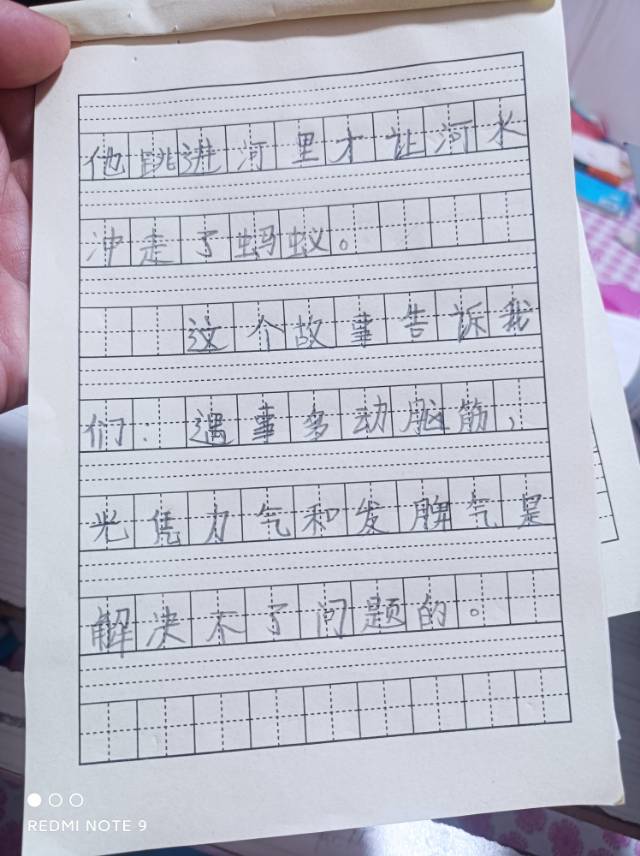 他跳进河里才让河水
冲走了蚂蚁。
这个故事告诉我
们：遇事多动脑筋，
光凭力气和发脾气是
解决不了问题的。
REDMI NOTE 9